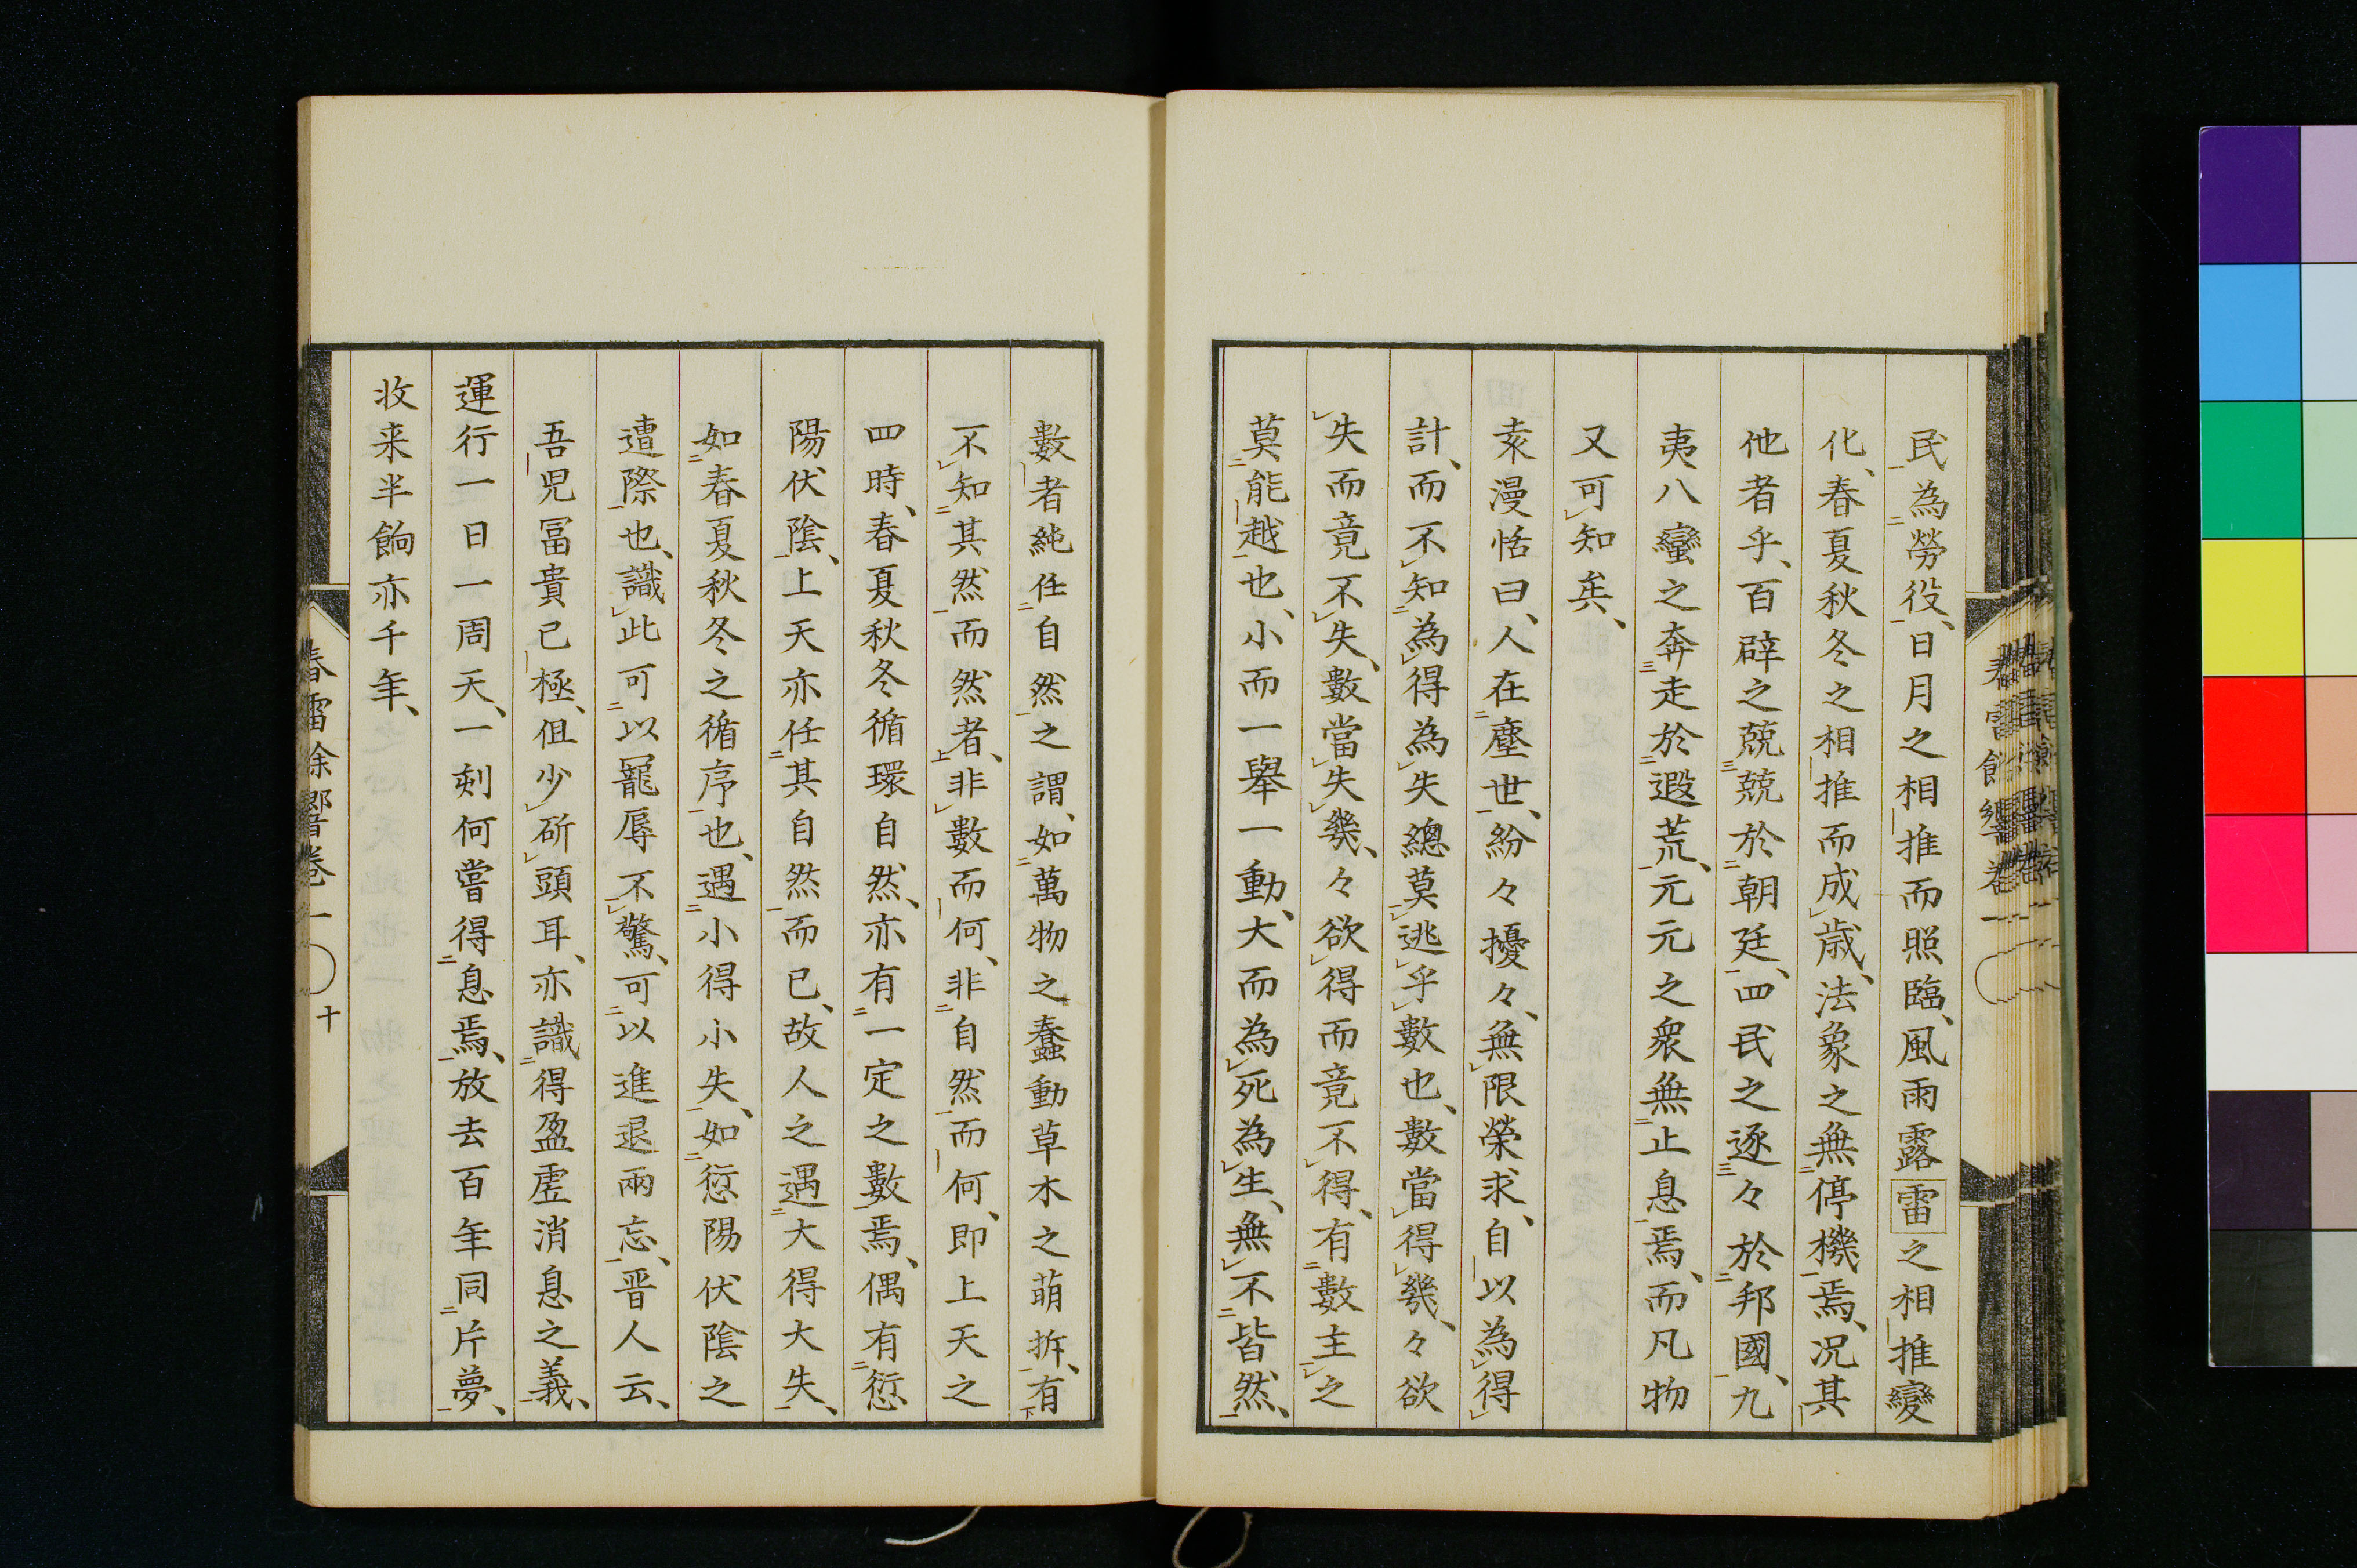 民為勞役、日月之相推而照臨、風雨露雷之相推變
化、春夏秋冬之相推而成歳、法象之無停機焉、况其
他者乎、百辟之兢兢於朝廷、四民之逐々於邦國、九
夷八蠻之奔走於遐荒、元元之衆無止息焉、而凡物
又可知矣、
袁漫恬曰、人在塵世、紛々擾々、無限榮求、自以為得
計、而不知為得為失總莫逃乎數也、數當得幾、々欲
失而竟不失、數當失幾、々欲得而竟不得、有數主之
莫能越也、小而一舉一動、大而為死為生、無不皆然、
數者純任自然之謂、如萬物之蠢動草木之萌拆、有
不知其然而然者、非數而何、非自然而何、即上天之
四時、春夏秋冬循環自然、亦有一定之數焉、偶有愆
陽伏陰、上天亦任其自然而已、故人之遇大得大失、
如春夏秋冬之循序也、遇小得小失、如愆陽伏陰之
遭際也、識此可以寵辱不驚、可以進退兩忘、晋人云、
吾児冨貴已極、但少斫頭耳、亦識得盈虚消息之義、
運行一日一周天、一刻何嘗得息焉、放去百年同片夢、
收来半餉亦千年、
春雷餘響卷一
十